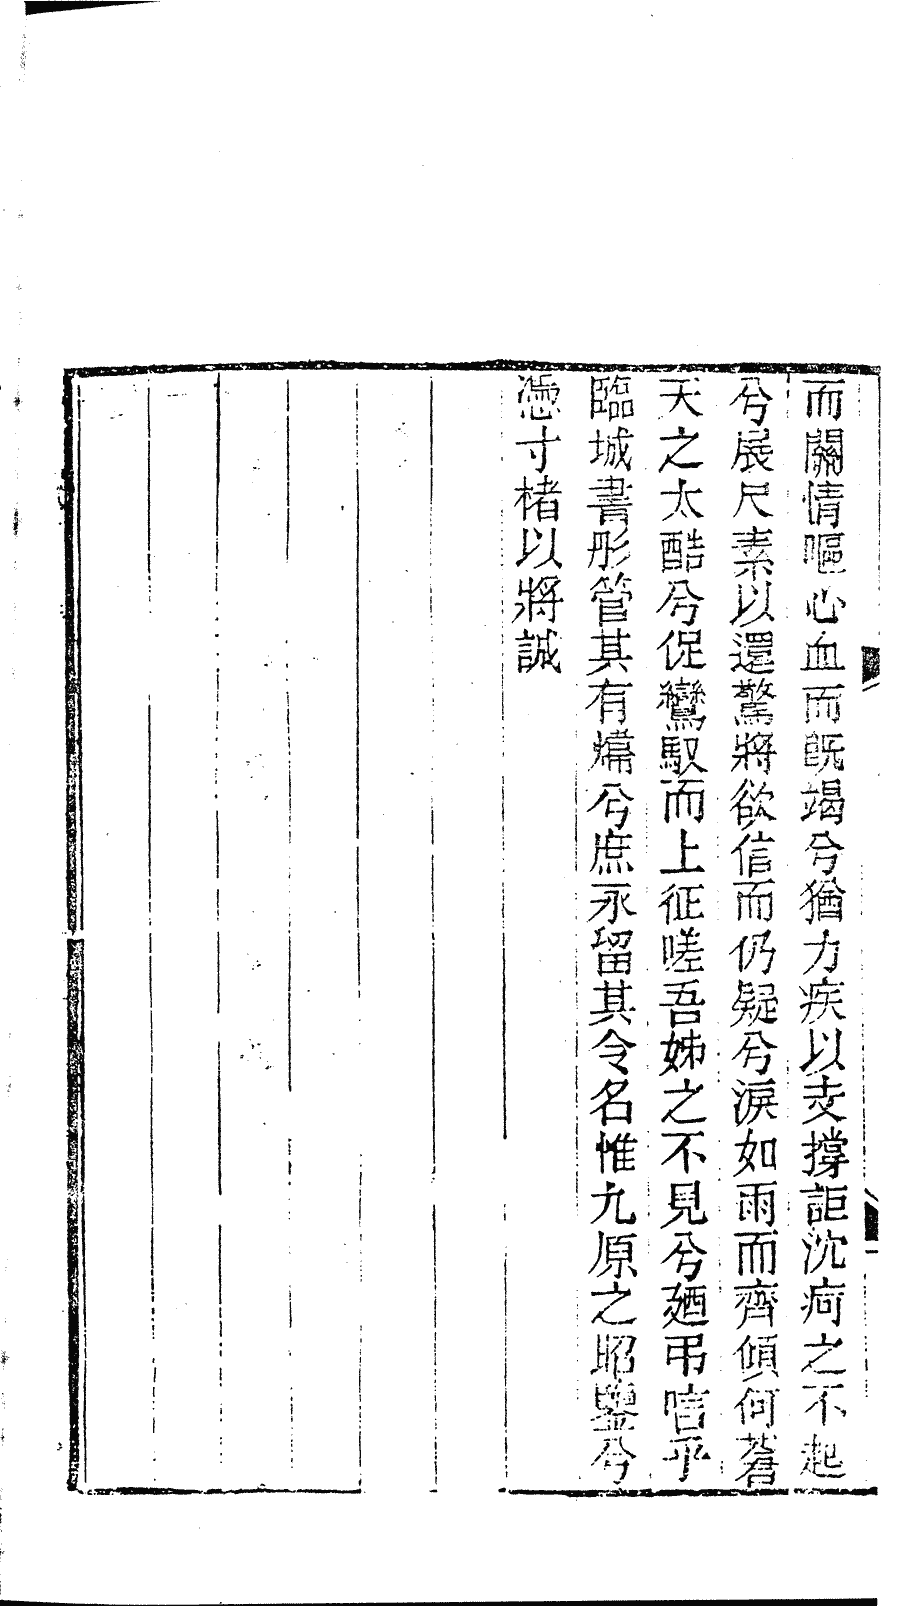 而關情嘔心血而既竭兮猶力疾以支撐詎沈疴之不起
兮展尺素以還驚將欲信而仍疑兮淚如雨而齊傾何蒼
天之太酷兮促鸞馭而上征嗟吾姊之不見兮廼弔唁乎
臨城書彤管其有煒兮庶永留其令名惟九原之昭鑒兮
憑寸楮以將誠